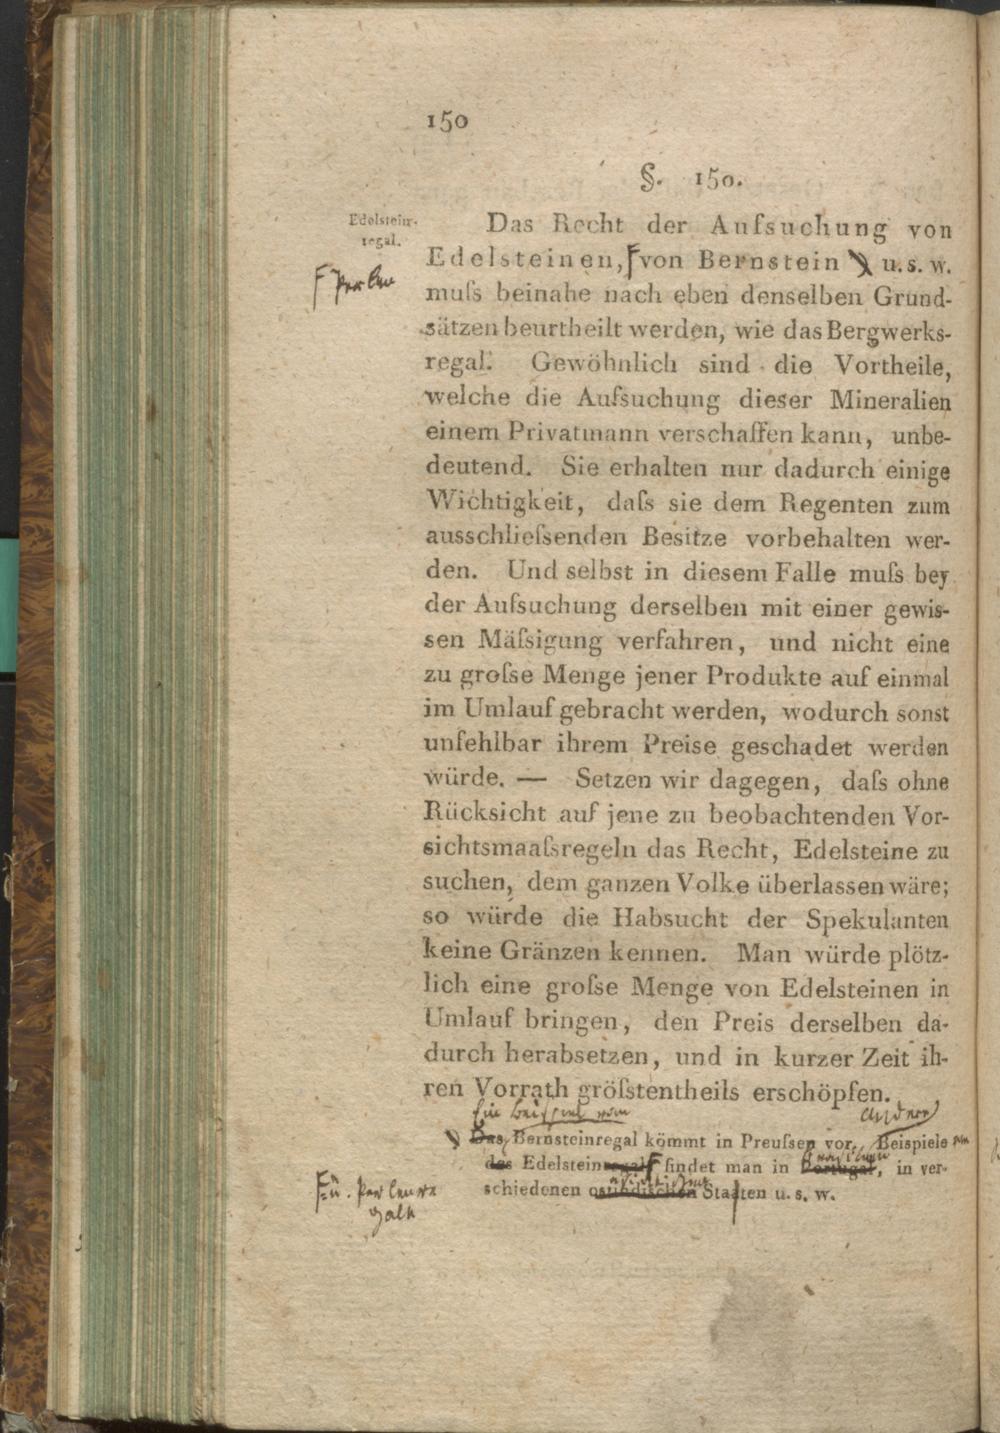 150
§. 150.
Edelstein-
regal.
Das Recht der Aufsuchung von
Edelsteinen, von Bernstein u. s. w.
Perlen
muſs beinahe nach eben denselben Grund-
sätzen beurtheilt werden, wie das Bergwerks-
regal. Gewöhnlich sind die Vortheile,
welche die Aufsuchung dieser Mineralien
einem Privatmann verschaffen kann, unbe-
deutend. Sie erhalten nur dadurch einige
Wichtigkeit, daſs sie dem Regenten zum
ausschlieſsenden Besitze vorbehalten wer-
den. Und selbst in diesem Falle muſs bey
der Aufsuchung derselben mit einer gewis-
sen Mäſsigung verfahren, und nicht eine
zu groſse Menge jener Produkte auf einmal
im Umlauf gebracht werden, wodurch sonst
unfehlbar ihrem Preise geschadet werden
würde. — Setzen wir dagegen, daſs ohne
Rücksicht auf jene zu beobachtenden Vor-
sichtsmaaſsregeln das Recht, Edelsteine zu
suchen, dem ganzen Volke überlassen wäre;
so würde die Habsucht der Spekulanten
keine Gränzen kennen. Man würde plötz-
lich eine groſse Menge von Edelsteinen in
Umlauf bringen, den Preis derselben da-
durch herabsetzen, und in kurzer Zeit ih-
ren Vorrath gröſstentheils erschöpfen.
Ein Beispiel vom andere
Das Bernsteinregal kömmt in Preuſsen vor. Beispiele
des Edelsteinregals findet man in Portugal, in ver-
schiedenen ostindischen Staaten u. s. w.
u. Perlenre
gals